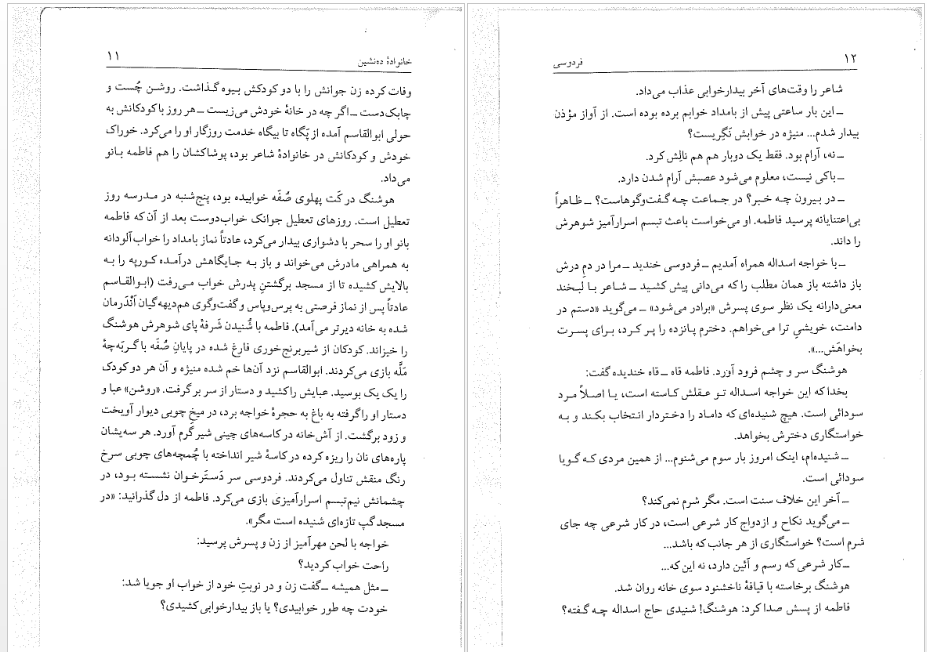 ۱۱
خانوادهٔ ده‌نشین
وفات کرده زن جوانش را با دو کودکش بیوه گذاشت. روشن چُست و
چابک‌دست ــ اگر چه در خانهٔ خودش می‌زیست ــ هر روز با کودکانش به
حولی ابوالقاسم آمده از پَگاه تا بیگاه خدمت روزگار او را می‌کرد. خوراک
خودش و کودکانش در خانوادهٔ شاعر بود، پوشاکشان را هم فاطمه بانو
می‌داد.
هوشنگ در کَت پهلوی صُفّه خوابیده بود، پنج‌شنبه در مدرسه روز
تعطیل است. روزهای تعطیل جوانک خواب‌دوست بعد از آن که فاطمه
بانو او را سحر با دشواری بیدار می‌کرد، عادتاً نماز بامداد را خواب‌آلودانه
به همراهی مادرش می‌خواند و باز به جایگاهش درآمده کورپه را به
بالایش کشیده تا از مسجد برگشتنِ پدرش خواب می‌رفت (ابوالقاسم
عادتاً پس از نماز فرصتی به پرس‌وپاس و گفت‌وگوی هم‌دیهه‌گیان اَنْدَرمان
شده به خانه دیرتر می‌آمد). فاطمه با شُنیدن شَرفهٔ پای شوهرش هوشنگ
را خیزاند. کودکان از شیربرنج‌خوری فارغ شده در پایان صُفّه با گربَچهٔ
مَلّه بازی می‌کردند. ابوالقاسم نزد آن‌ها خم شده منیژه و آن هر دو کودک
را یک یک بوسید. عبایش را کشید و دستار از سر برگرفت. «روشن» عبا و
دستار او را گرفته به باغ به حجرهٔ خواجه برد، در میخ چوبی دیوار آویخت
و زود برگشت. از آش‌خانه در کاسه‌های چینی شیر گرم آورد. هر سه‌یشان
پاره‌های نان را ریزه کرده در کاسهٔ شیر انداخته با چُمچه‌های چوبی سرخ
رنگ منقش تناول می‌کردند. فردوسی سر دَستَرخوان نشسته بود، در
چشمانش نیم‌تبسم اسرارآمیزی بازی می‌کرد. فاطمه از دل گذرانید: «در
مسجد گپ تازه‌ای شنیده است مگر».
خواجه با لحن مهرآمیز از زن و پسرش پرسید:
راحت خواب کردید؟
ــ مثل همیشه ــ گفت زن و در نوبتِ خود از خواب او جویا شد:
خودت چه طور خوابیدی؟ یا باز بیدارخوابی کشیدی؟
۱۲
فردوسی
شاعر را وقت‌های آخر بیدارخوابی عذاب می‌داد.
ــ این بار ساعتی پیش از بامداد خوابم برده بوده است. از آواز مؤذن
بیدار شدم... منیژه در خوابش نَگِریست؟
ــ نه، آرام بود. فقط یک دوبار هم هم نالِش کرد.
ــ باکی نیست، معلوم می‌شود عصبش آرام شدن دارد.
ــ در بیرون چه خبر؟ در جماعت چه گفت‌وگوهاست؟ ــ ظاهراً
بی‌اعتنایانه پرسید فاطمه. او می‌خواست باعث تبسم اسرارآمیز شوهرش
را داند.
ــ با خواجه اسداله همراه آمدیم ــ فردوسی خندید ــ مرا در دمِ درش
باز داشته باز همان مطلب را که می‌دانی پیش کشید ــ شاعر با لبخند
معنی‌دارانه یک نظر سوی پسرش «برادر می‌شود» ــ می‌گوید «دستم در
دامنت، خویشیِ ترا می‌خواهم. دخترم پانزده را پر کرد، برای پسرت
بخواهَش...».
هوشنگ سر و چشم فرود آورد. فاطمه قاه ــ قاه خندیده گفت:
بخدا که این خواجه اسداله تو عقلش کاسته است، یا اصلاً مرد
سودائی است. هیچ شنیده‌ای که داماد را دختردار انتخاب بکند و به
خواستگاری دخترش بخواهد.
ــ شنیده‌ام، اینک امروز بار سوم می‌شنوم... از همین مردی که گویا
سودائی است.
ــ آخر این خلاف سنت است. مگر شرم نمی‌کند؟
ــ می‌گوید نکاح و ازدواج کار شرعی است، در کار شرعی چه جای
شرم است؟ خواستگاری از هر جانب که باشد...
ــ کار شرعی که رسم و آئین دارد، نه این که...
هوشنگ برخاسته با قیافهٔ ناخشنود سوی خانه روان شد.
فاطمه از پسش صدا کرد: هوشنگ! شنیدی حاج اسداله چه گفته؟